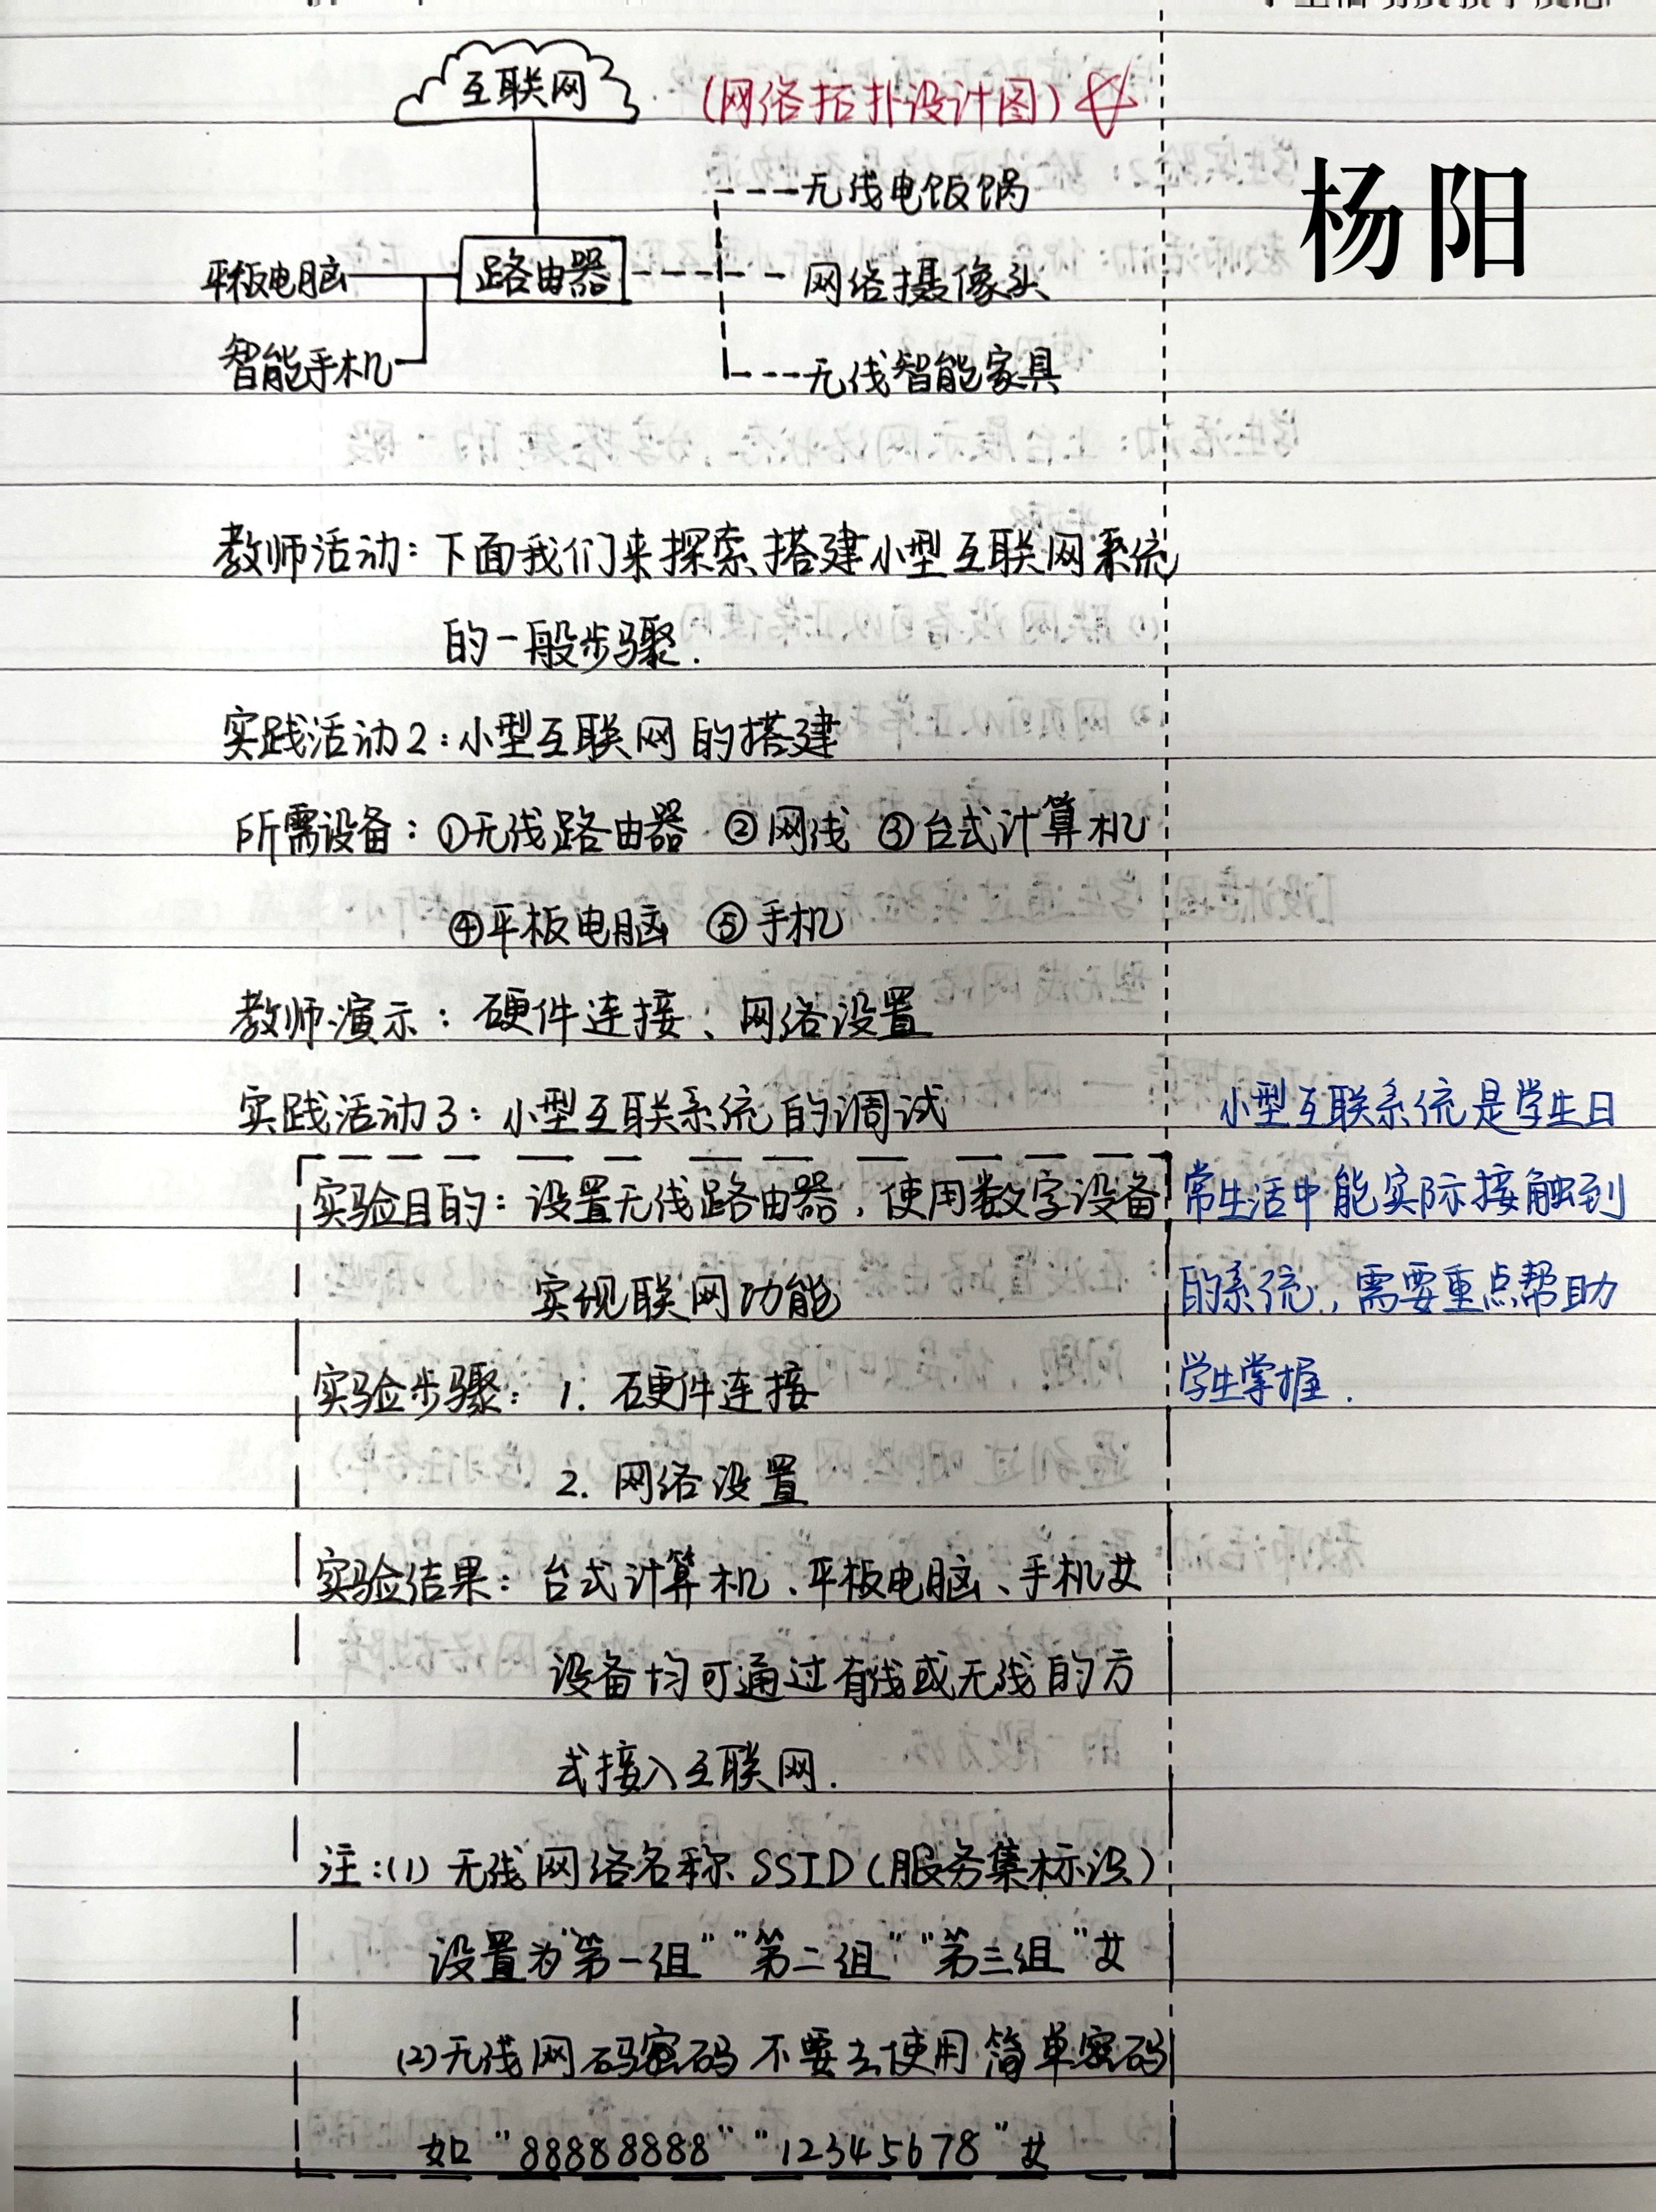 互联网
(网络拓扑设计图)
杨阳
无线电饭锅
平板电脑 路由器 网络摄像头
智能手机 无线智能家具
教师活动：下面我们来探索搭建小型互联网系统
的一般步骤.
实践活动2：小型互联网的搭建
所需设备：①无线路由器 ②网线 ③台式计算机
④平板电脑 ⑤手机
教师演示：硬件连接、网络设置
实践活动3：小型互联系统的调试
实验目的：设置无线路由器，使用数字设备
实现联网功能
实验步骤：1. 硬件连接
2. 网络设置
实验结果：台式计算机、平板电脑、手机
设备均可通过有线或无线的方
式接入互联网.
注：(1) 无线网络名称SSID(服务集标识)
设置为"第一组""第二组""第三组"
(2)无线网码密码不要去使用简单密码
如"88888888""12345678"
小型互联系统是学生日
常生活中能实际接触到
的系统，需要重点帮助
学生掌握.